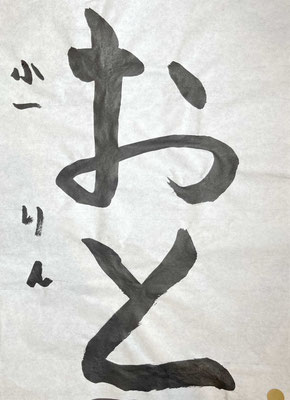 おと
小一
りん